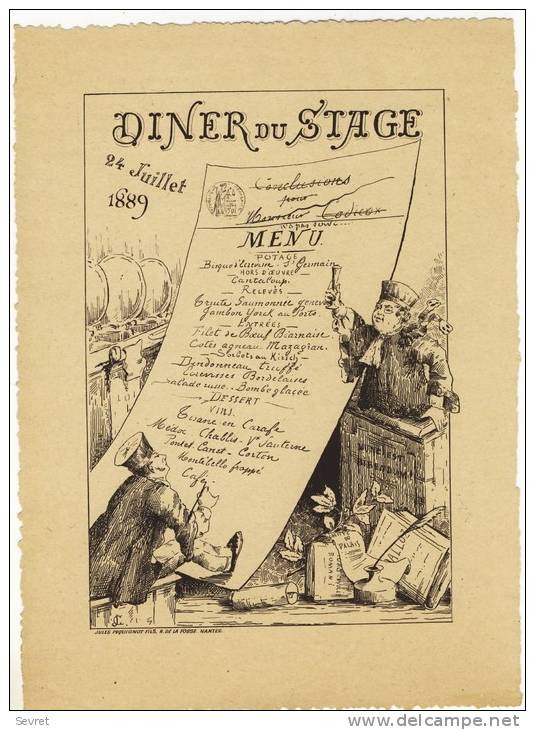 DINER DU STAGE
24 Juillet
1889
Conclusions
pour
Monsieur Cadieux
n'a pas suivi....
MENU.
POTAGE
Bisque d'écrevisse - St Germain
HORS D'ŒUVRE
Cantaloup.
RELEVÉS
Truite Saumonnée genevoise
Jambon Yorck au Porto.
ENTRÉES
Filet de Bœuf Béarnaise.
Cotes agneau Mazagran.
Sorbets au Kirsch
Dindonneau truffé
Ecrevisses Bordelaises
Salade russe. Bombe glacée
DESSERT
VINS.
Tisane en Carafe
Médoc Chablis - Vx Sauterne
Pontet-Canet - Corton
Montebello frappé
Café.
PALAIS
ROMANI
DALLOZ
JULES PEQUIGNOT FILS, R. DE LA FOSSE. NANTES.
Sevret
www.delcampe.net